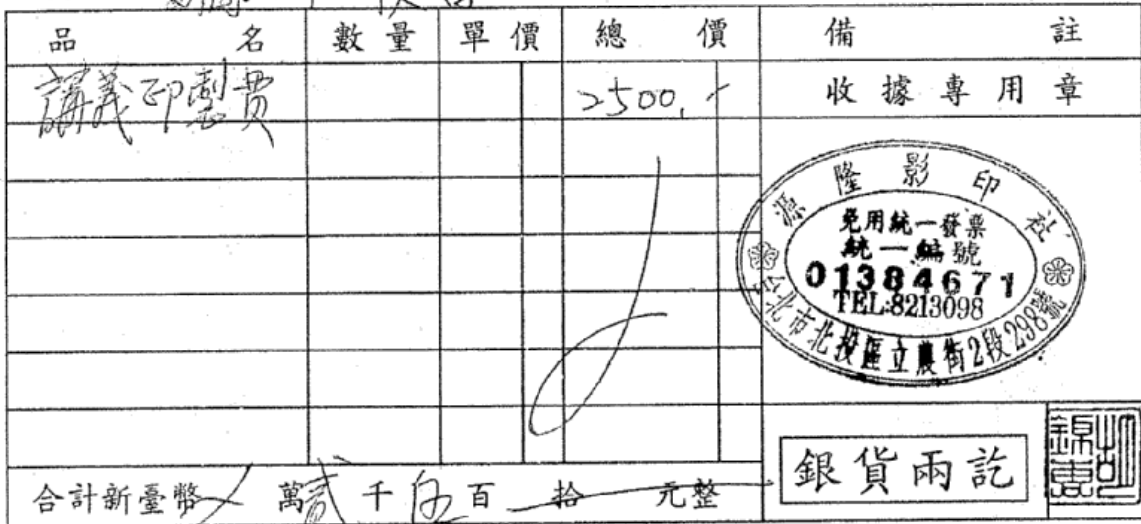 品名 數量 單價 總價 備註
講義印製費 2500,-
收據專用章
源隆影印社
免用統一發票
統一編號
01384671
TEL:8213098
台北市北投區立農街2段298號
銀貨兩訖
合計新臺幣 萬貳千伍百拾元整